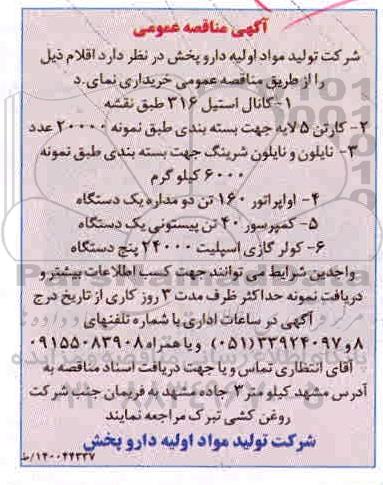 آگهی مناقصه عمومی
شرکت تولید مواد اولیه دارو پخش در نظر دارد اقلام ذیل
را از طریق مناقصه عمومی خریداری نمای.د
۱- کانال استیل ۳۱۶ طبق نقشه
۲- کارتن ۵ لایه جهت بسته بندی طبق نمونه ۲۰۰۰۰ عدد
۳- نایلون و نایلون شرینگ جهت بسته بندی طبق نمونه
۶۰۰۰ کیلو گرم
۴- اواپراتور ۱۶۰ تن دو مداره یک دستگاه
۵- کمپرسور ۴۰ تن پیستونی یک دستگاه
۶- کولر گازی اسپلیت ۲۴۰۰۰ پنج دستگاه
واجدین شرایط می توانند جهت کسب اطلاعات بیشتر و
دریافت نمونه حداکثر ظرف مدت ۳ روز کاری از تاریخ درج
آگهی در ساعات اداری با شماره تلفنهای
۸ و ۳۳۹۲۴۰۹۷(۰۵۱) و یا همراه ۰۹۱۵۵۰۸۳۹۰۸
آقای انتظاری تماس و یا جهت دریافت اسناد مناقصه به
آدرس مشهد کیلو متر ۳ جاده مشهد به فریمان جنب شرکت
روغن کشی تبرک مراجعه نمایند
شرکت تولید مواد اولیه دارو پخش
۱۴۰۰۴۴۳۳۷/ط